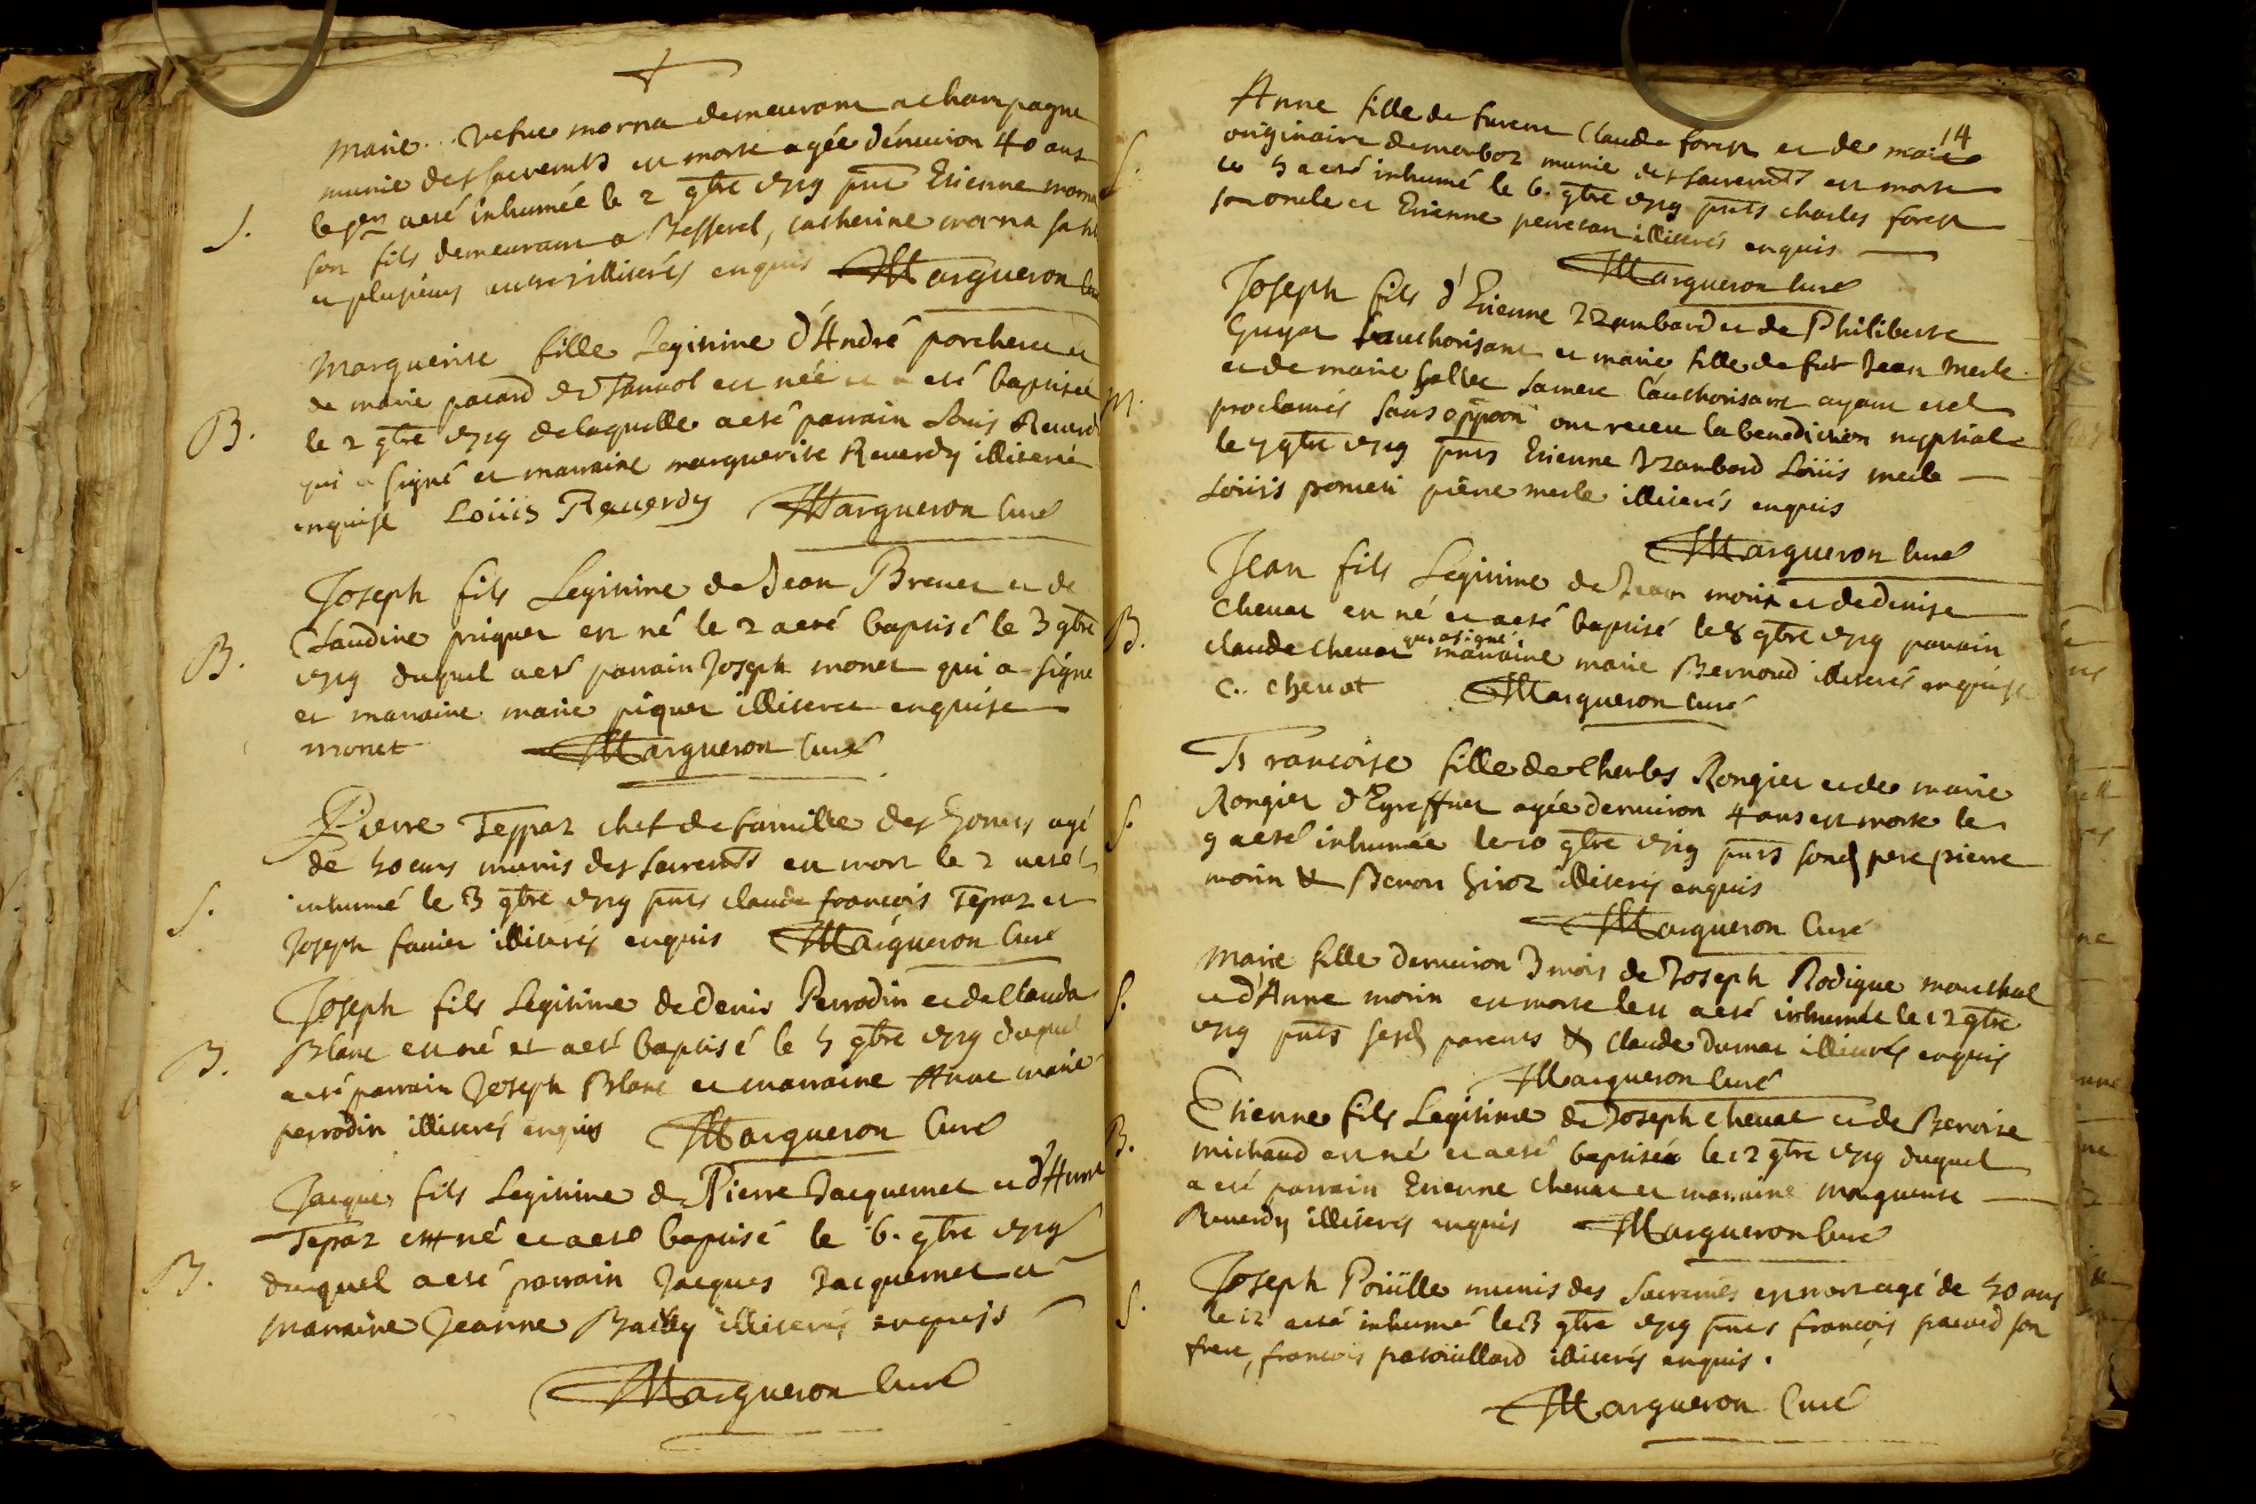 Marie... vefue morna demeurant a champagne
munie des sacremts est morte agée d'énuiron 40 ans
le per a eté inhumée le 2 9bre 1719 pnt Etienne morna
S.
son fils demeurant a Besserel, catherine morna sa
et plusieurs autres illiterés enquis Margueron Curé
Marguerite fille Legitime d'André porcheret et
de marie pacard de est née et a eté baptisée
B.
le 2 9bre 1719 de laquelle a eté parrain Louis Reuerdy
qui a signé et marraine marguerite Reuerdy illiterée
enquise Loüis Reuerdy Margueron Curé
Joseph fils Legitime de Jean Breuet et de
Claudine piquet est né le 2 a eté baptisé le 3 9bre
B.
1719 duquel a eté parrain Joseph monet qui a signé
et marraine marie piquet illiteree enquise
monet Margueron Curé
Pierre Teppaz chef de famille des agé
de 50 ans munis des sacremts est mort le 2 a eté
S.
inhumé le 3 9bre 1719 pnts claude françois Tepaz et
Joseph fauier illiterés enquis Margueron Curé
Joseph fils Legitime de Denis Perrodin et de Clauda
B.
Blanc est né et a eté baptisé le 5 9bre 1719 duquel
a eté parrain Joseph Blanc et marraine Anne marie
perrodin illiterés enquis Margueron Curé
Jacques fils Legitime de Pierre Jacquemet et d'Anne
Tepaz est né et a eté baptisé le 6. 9bre 1719
B.
duquel a eté parrain Jacques Jacquemet et
marraine Jeanne Bailly illiterés enquis
Margueron Curé
14
Anne fille de furent Claude forest et de marie
S.
originaire de marboz munie des sacremts est morte
le 5 a eté inhumé le 6. 9bre 1719 pnts charles forest
son oncle et Etienne illiterés enquis
Margueron Curé
Joseph fils d'Etienne et de Philiberte
Guyot L'authorisant et marie fille de fut Jean merle
M.
et de marie sa mere l'authorisant ayant eté
proclamés sans oppoon ont receu la benediction nuptiale
le 7 9bre 1719 pnts Etienne Loüis merle
Loüis piere merle illiterés enquis
Margueron Curé
Jean fils Legitime de Jean morin et de denise
B.
Cheuat est né et a eté baptisé le 8 9bre 1719 parrain
claude cheuat qui a signé marraine marie Bernoud illiterés enquise
C. cheuat Margueron Curé
Francoise fille de Charles Rongier et de marie
S.
Rongier d'Eyreffuet agée denuiron 4 ans est morte le
9 a eté inhumée le 10 9bre 1719 pnts sond pere pierre
morin & Benoit illiterés enquis
Margueron Curé
Marie fille denuiron 3 mois de Joseph Rodigue mareschal
S.
et d'Anne morin est morte le 11 a eté inhumée le 12 9bre
1719 pnts sesd parents & Claude Dumas illiterés enquis
Margueron Curé
Etienne fils Legitime de Joseph cheuat et de Benoite
B.
michaud est né et a eté baptisé le 12 9bre 1719 duquel
a eté parrain Etienne cheuat et marraine marguerite
Reuerdy illiterés enquis Margueron Curé
Joseph Poüille munis des Sacremts est mort agé de 50 ans
S.
le 12 a eté inhumé le 13 9bre 1719 pnts françois pacard son
frere, françois patoüillard illiterés enquis.
Margueron Curé